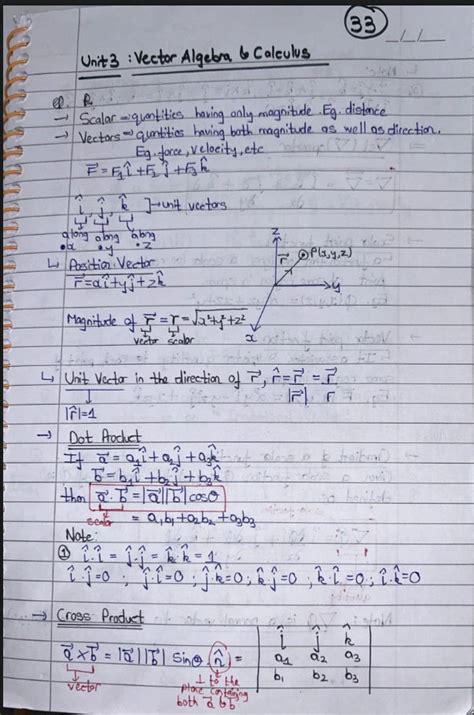 33
_/_/_
Unit 3 : Vector Algebra & Calculus
→ Scalar → quantities having only magnitude. Eg. distance
→ Vectors → quantities having both magnitude as well as direction.
Eg. force, velocity, etc
F⃗ = F₁î + F₂ĵ + F₃k̂
î, ĵ, k̂ ] → unit vectors
along along along
x y z
↳ Position Vector
r⃗ = xî + yĵ + zk̂
z
r⃗ P(x,y,z)
y
x
Magnitude of r⃗ = r = √x²+y²+z²
vector scalar
↳ Unit Vector in the direction of r⃗, r̂ = r⃗/|r⃗| = r⃗/r
|r̂| = 1
→ Dot Product
If a⃗ = a₁î + a₂ĵ + a₃k̂
b⃗ = b₁î + b₂ĵ + b₃k̂
then a⃗·b⃗ = |a⃗||b⃗|cosθ
scalar
= a₁b₁ + a₂b₂ + a₃b₃
Note:
① î·î = ĵ·ĵ = k̂·k̂ = 1
î·ĵ = 0 ; ĵ·î = 0 ; ĵ·k̂ = 0 ; k̂·ĵ = 0 ; k̂·î = 0 ; î·k̂ = 0
→ Cross Product
a⃗ × b⃗ = |a⃗||b⃗| sinθ n̂ = | î ĵ k̂ |
| a₁ a₂ a₃ |
| b₁ b₂ b₃ |
vector
⊥ to the
plane containing
both a⃗ & b⃗